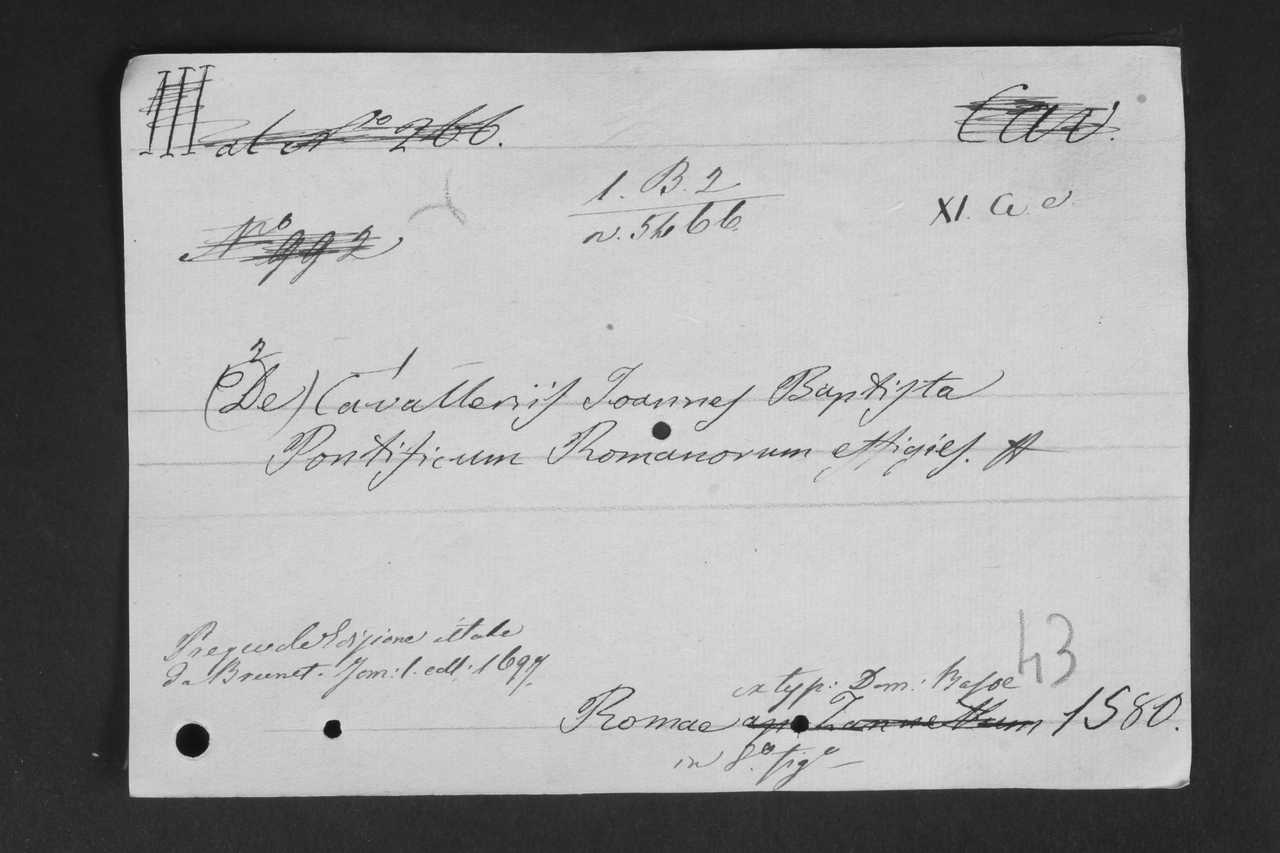 III al Nro 266. Cav.
1. B. 2
XI. C. e
n. 5466
Nro 992
2 1
(De) Cavalleriis Joannes Baptista
Pontificum Romanorum effigies.
43
Pregevole Edizione citata
da Brunet. Tom: 1. coll: 1697.
ex typ: Dom: Basae
Romae ap. Zannettum 1580.
in 8.º fig.e